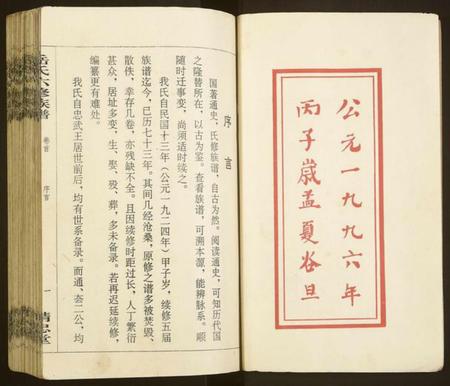 公元一九九六年
丙子歲孟夏谷旦
序言
国著通史,氏修族谱,自古为然。阅读通史,可知历代国
之隆替所在,以古为鉴。查看族谱,可溯本源,能辨脉系。顺
随时迁事变,尚须适时续之。
我氏自民国十三年(公元一九二四年)甲子岁,续修五届
族谱迄今,已历七十三年。其间几经沧桑,原修之谱多被焚毁、
散佚,幸存几卷,亦残缺不全。且因续修时距过长,人丁繁衍
甚众,居址多变,生、娶、殁、葬,多未备录。若再迟延续修,
编纂更有难处。
我氏自忠武王居世前后,均有世系备录。而通、枩二公,均
岳氏六修族谱
卷首
序言
一
精忠堂